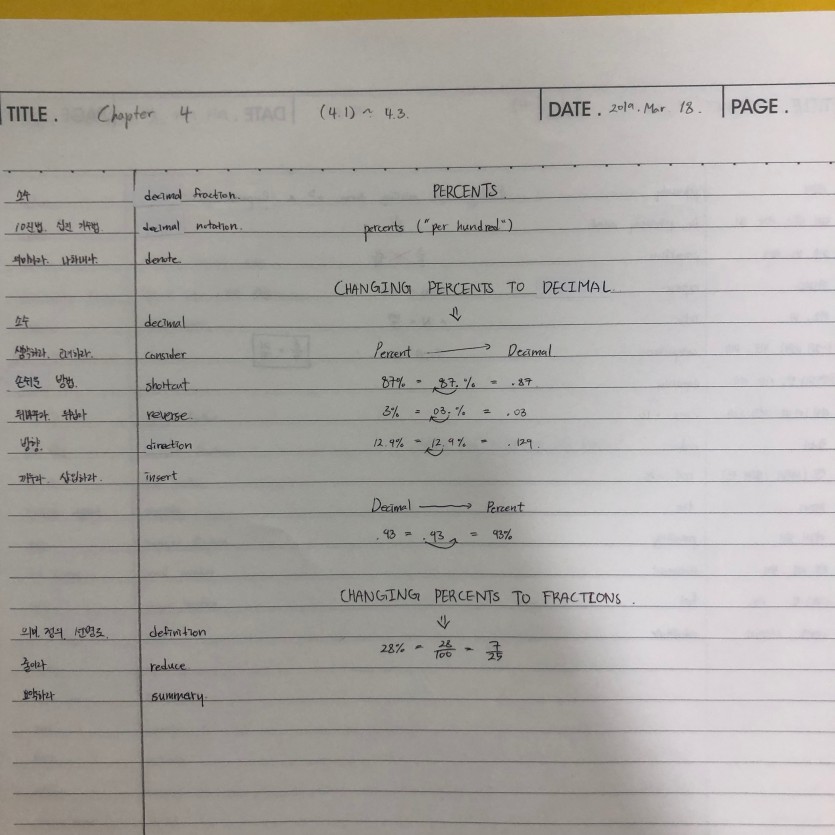 TITLE. Chapter 4 (4.1) ~ 4.3. DATE. 2019. Mar 18. PAGE.
소수 decimal fraction. PERCENTS
10진법. 십진 기수법 decimal notation. percents ("per hundred")
의미하다. 나타내다. denote
CHANGING PERCENTS TO DECIMAL
⇓
소수 decimal
생각하다. 고려하다. consider Percent → Decimal
손쉬운 방법. shortcut 87% = 87.% = .87
뒤바꾸다. 뒤집다 reverse 3% = 03.% = .03
방향. direction 12.9% = 12.9% = .129.
끼우다. 삽입하다. insert
Decimal → Percent
.93 = .93 = 93%
CHANGING PERCENTS TO FRACTIONS.
⇓
의미. 정의. 선명도. definition 28% = 28/100 = 7/25
줄이다 reduce
요약하다 summary.